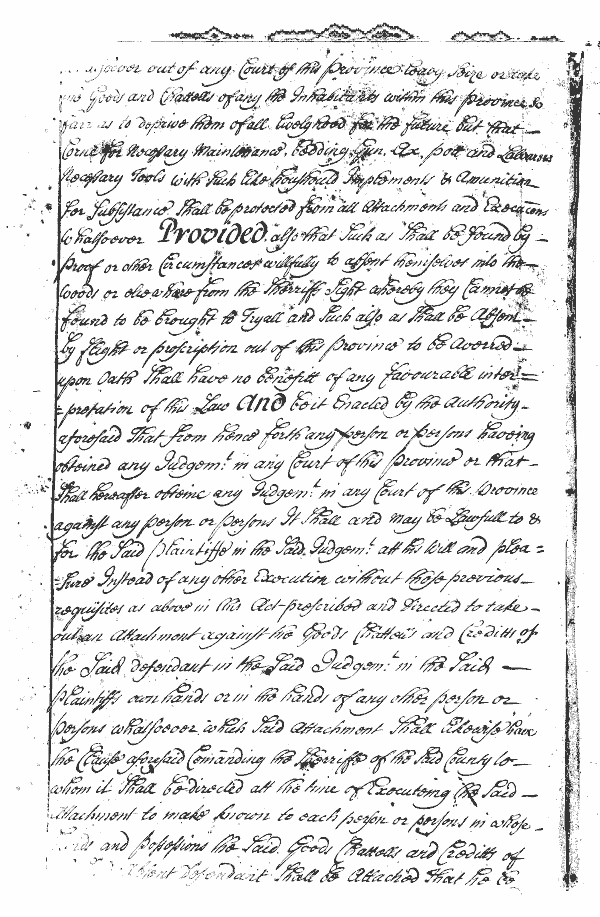 soever out of any Court of this Province Leavy Seize or take
the Goods and Chattells of any the Inhabitants within this Province so
farr as to deprive them of all Livelyhood for the future but that
Corne for Necessary Maintenance, Bedding, Gun, Ax, pott and Labourers
Necessary Tools with such like houshould Implements & Amunition
for Subsistance Shall be protected from all Attachments and Execucons
whatsoever Provided also that Such as Shall be found by
Proof or other Circumstances willfully to absent themselves into the
Woods or elsewhere from the Sherriffs Sight whereby they Cannot be
found to be brought to Tryall and Such also as Shall be Absent
by flight or proscription out of this Province to be averred
upon Oath Shall have no benefitt of any favourable inter=
=pretation of this Law And be it Enacted by the Authority
aforesaid That from hence forth any person or persons haveing
obteined any Judgem.t in any Court of this Province or that
Shall hereafter obteine any Judgem.t in any Court of this Province
against any person or persons It Shall and may be Lawfull to &
for the Said Plaintiffe in the Said Judgem.t att his Will and plea=
=sure Instead of any other Execution without those previous
requisites as above in this Act prescribed and directed to take
out an Attachment against the Goods Chattells and Creditts of
the Said defendant in the Said Judgem.t in the Said
Plaintiffs own hands or in the hands of any other person or
persons whatsoever which Said Attachment Shall likewise have
the Clause aforesaid Comanding the Sherriffe of the Said County to
whom it Shall be directed att the time of Executeing the Said
Attachment to make known to each person or persons in whose
hands and possessions the Said Goods Chattells and Creditts of
absent defendant Shall be Attached that he be